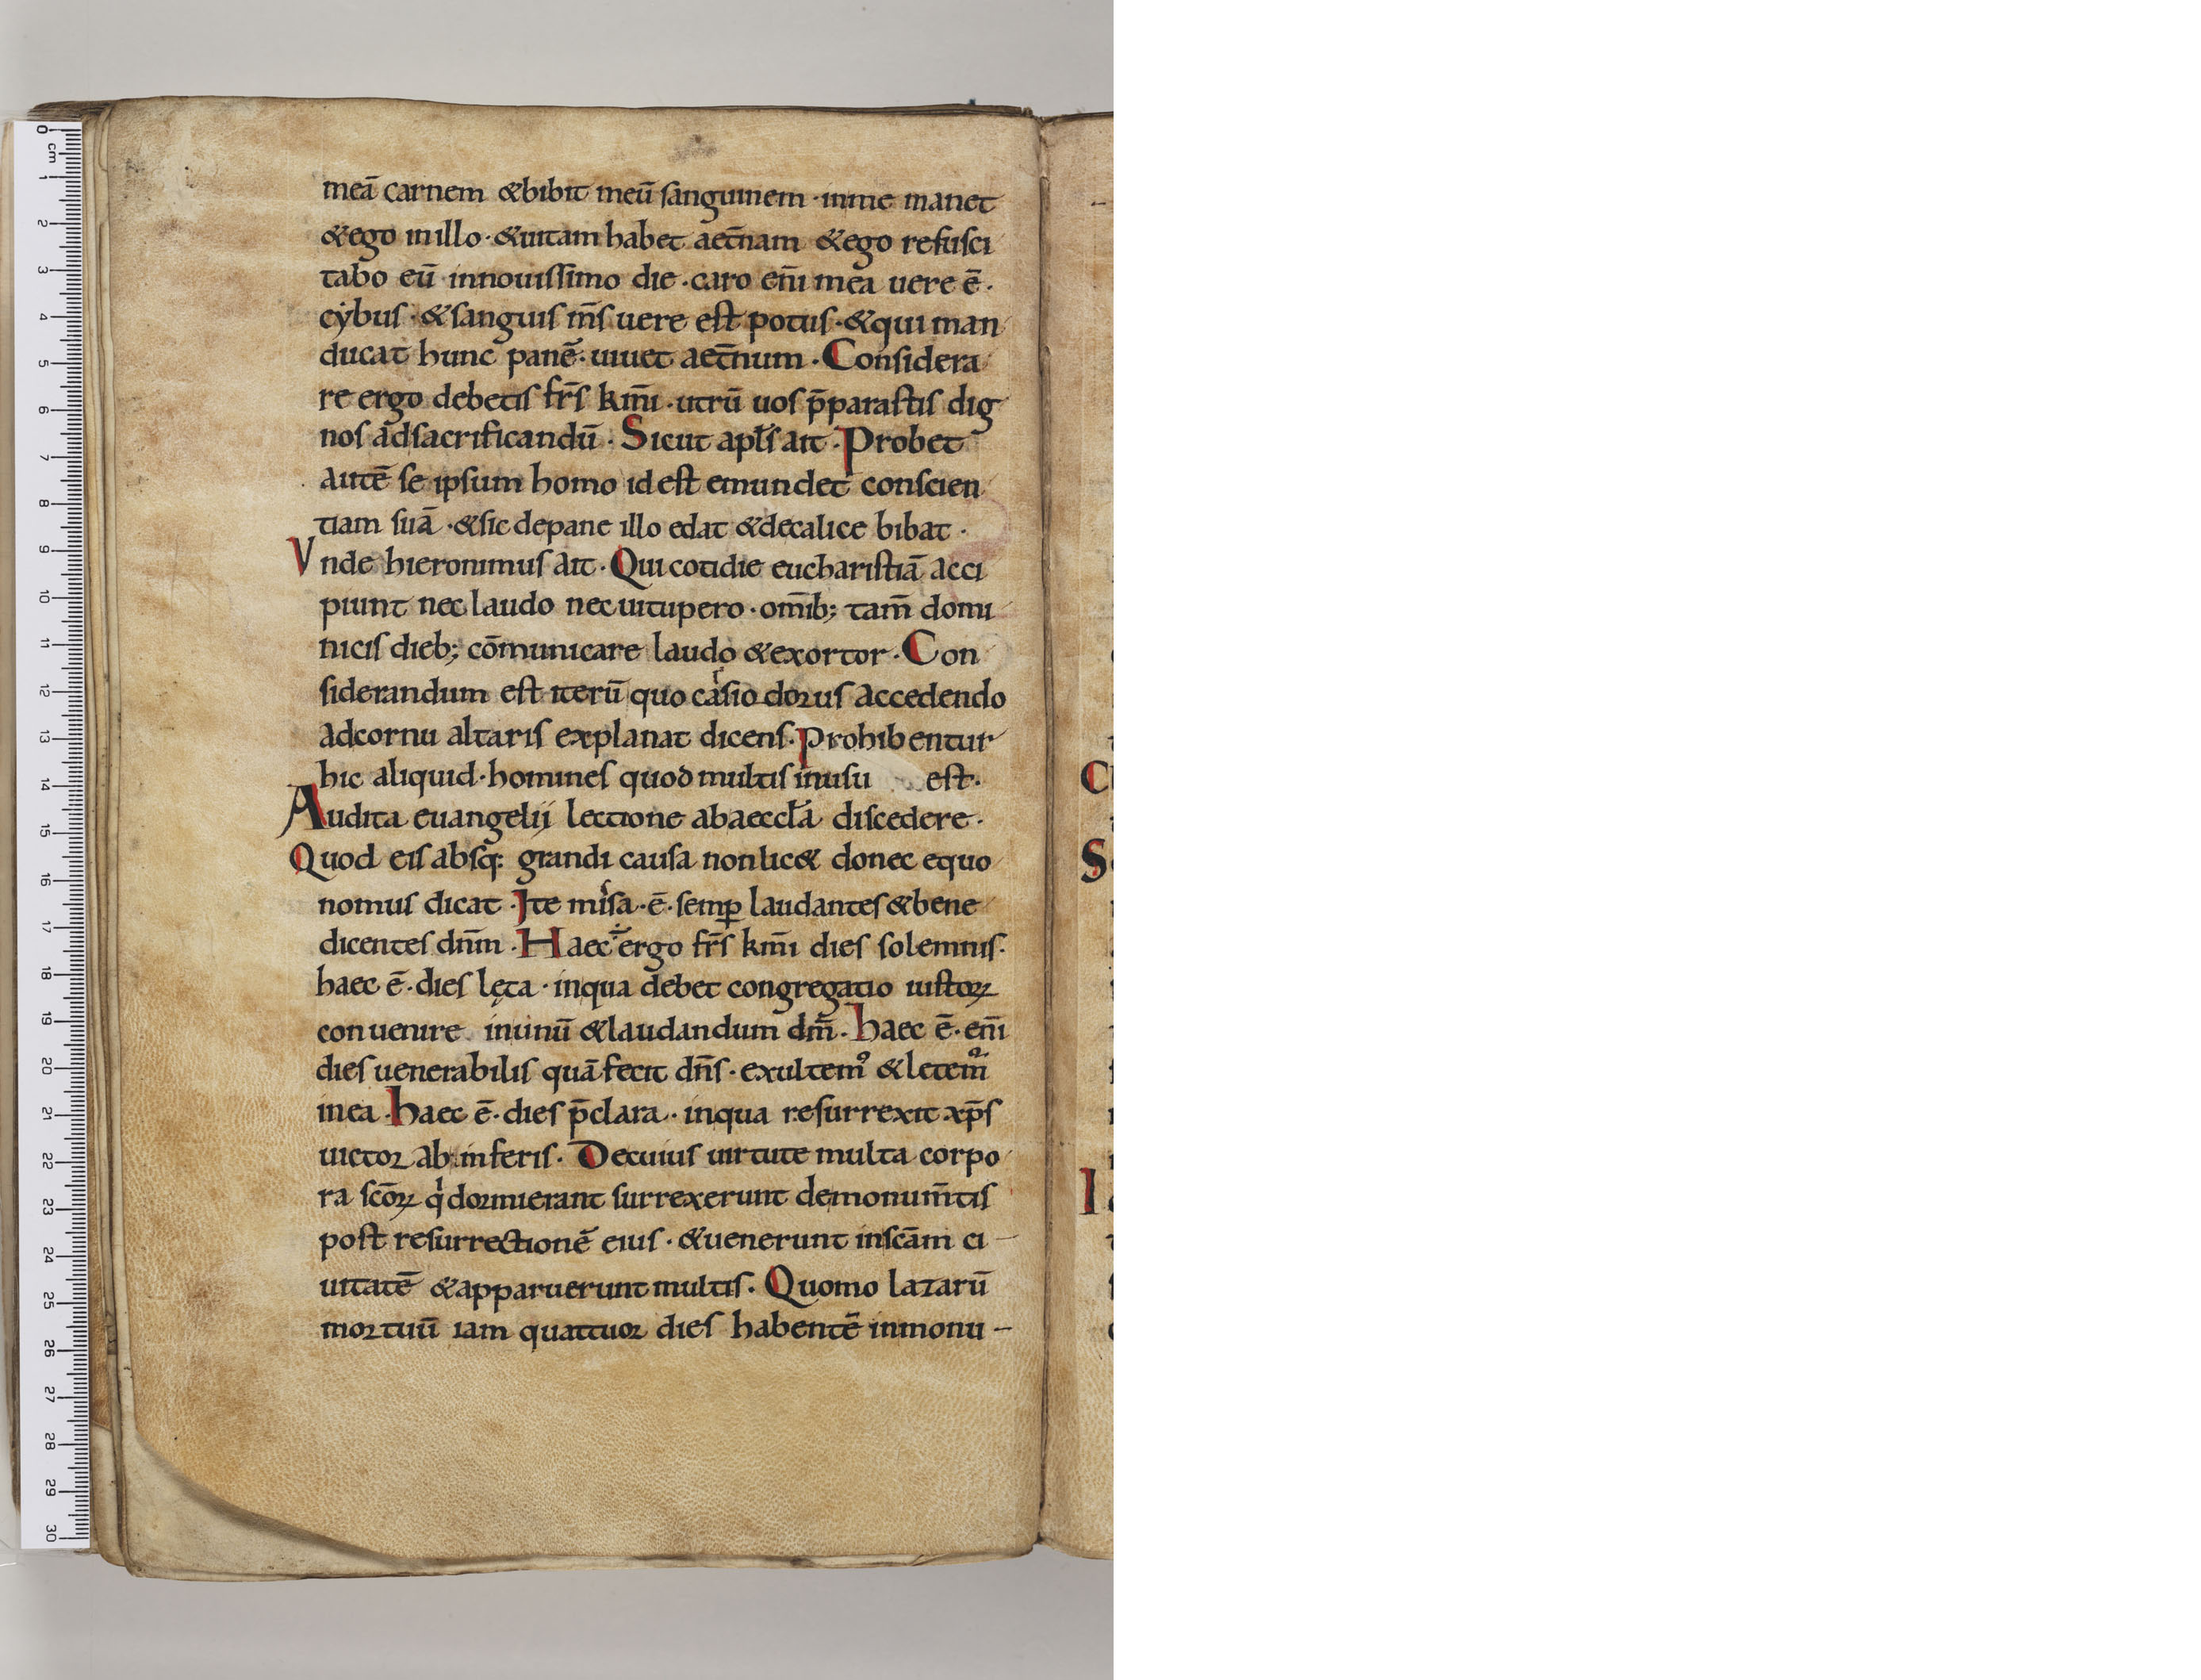 meā carnem &bibit meū sanguinem · inme manet
&ego inillo · &uitam habet aet̄nam &ego resusci
tabo eū innouissimo die · caro eni̅ mea uere ē ·
cẏbus · &sanguis m̄s uere est potus · &qui man
ducat hunc panē · uiuet aet̄num · Considera
re ergo debetis fr̄s km̄i · utrū uos p̄parastis dig
nos adsacrificandū · Sicut apl̄s ait · Probet
autē se ipsum homo id est emundet conscien
tiam suā · &sic depane illo edat &decalice bibat ·
Vnde hieronimus ait · Qui cotidie eucharistiā acci
piunt nec laudo nec uitupero · om̄ib; tam̄ domi
nicis dieb; cōmunicare laudo &exortor · Con
siderandum est iterū quo casiodorus accedendo
adcornu altaris explanat dicens · Prohibentur
hic aliquid · homines quod multis inusu est ·
Audita euangelij lectione abaeccl̄a discedere ·
Quod eis absq: grandi causa nonlic& donec equo
nomus dicat · Ite misa · ē · semꝑ laudantes &bene
dicentes dn̄m · Haec ÷ ergo fr̄s km̄i dies solemnis ·
haec ē · dies lęta · inqua debet congregatio iustoꝝ
conuenire inunū &laudandum dm̄ · haec ē · eni̅
dies uenerabilis quā fecit dn̄s · exultemꝰ &letem
inea · haec ē · dies p̄clara · inqua resurrexit xp̄s
uictor ab inferis · Decuius uirtute multa corpo
ra sc̄oꝝ qͥ dormierant surrexerunt demonum̄tis
post resurrectionē eius · &uenerunt insc̄am ci –
uitatē &apparuerunt multis · Quomo lazarū
mortuū iam quattuor dies habentē inmonu –
0 cm 1
2
3
4
5
6
7
8
9
10
11
12
13
14
15
16
17
18
19
20
21
22
23
24
25
26
27
28
29
30